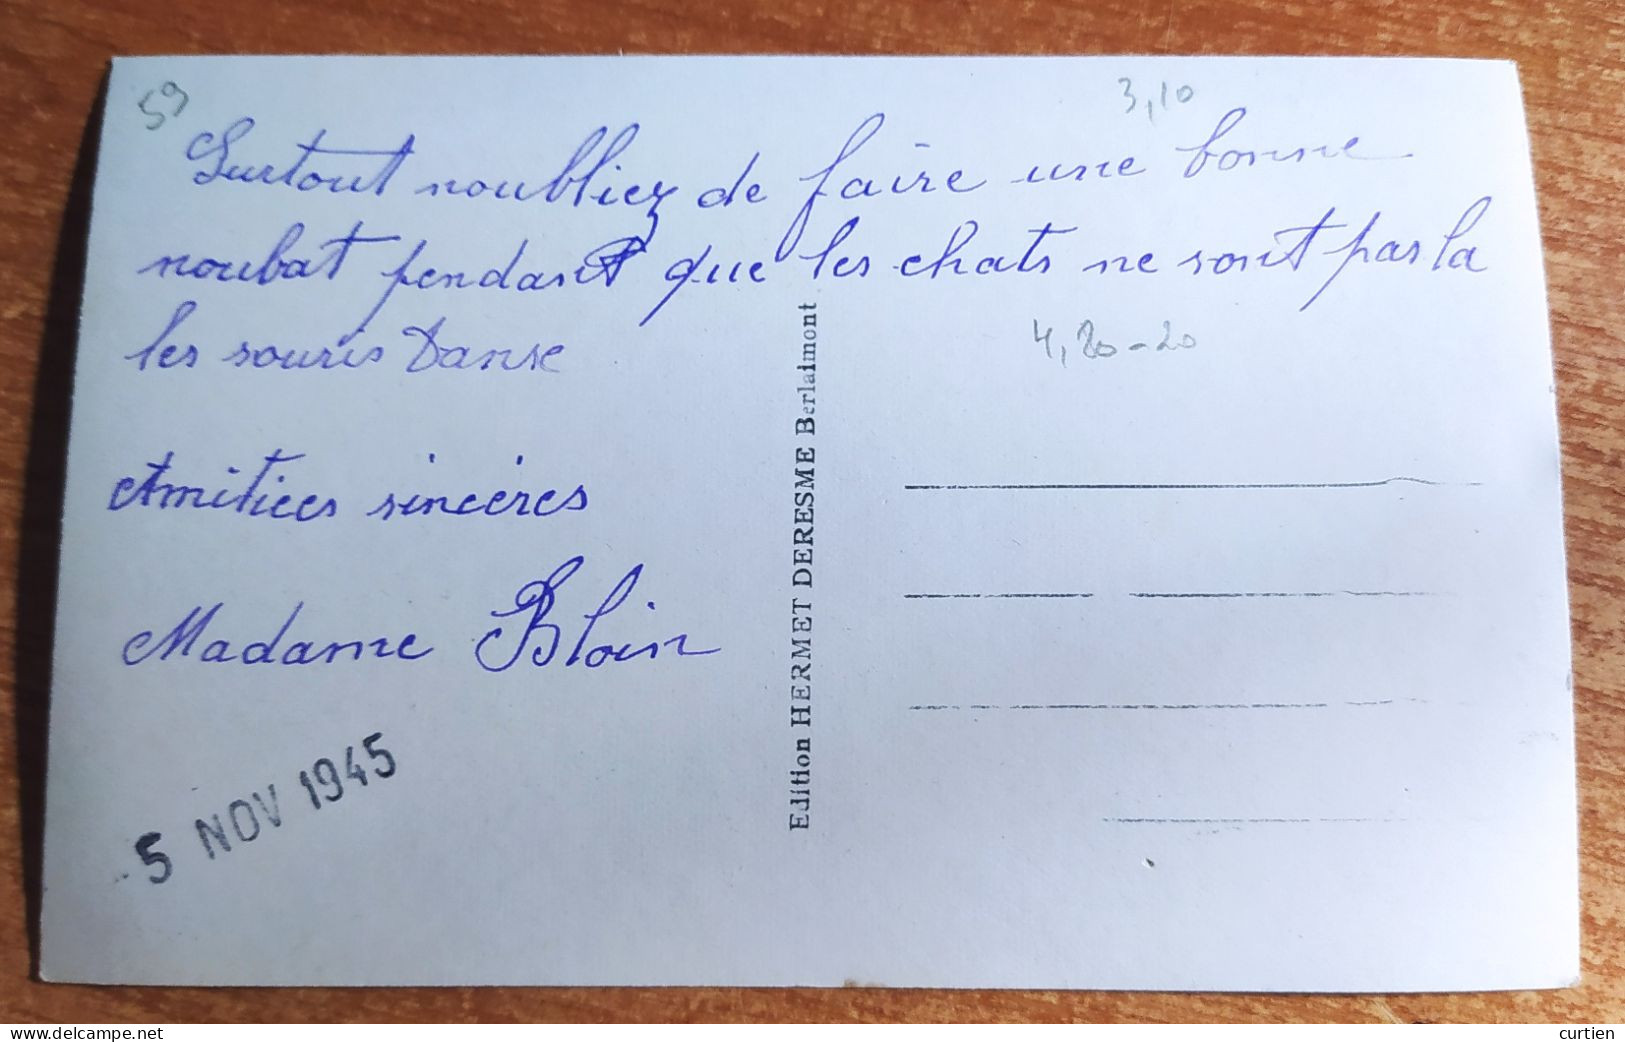 59
3,10
Surtout noubliez de faire une bonne
noubat pendant que les chats ne sont pas la
les souris Danse
4,20-20
Amitiees sincères
Madame Bloin
5 NOV 1945
Edition HERMET DERESME Berlaimont
delcampe.net
curtien